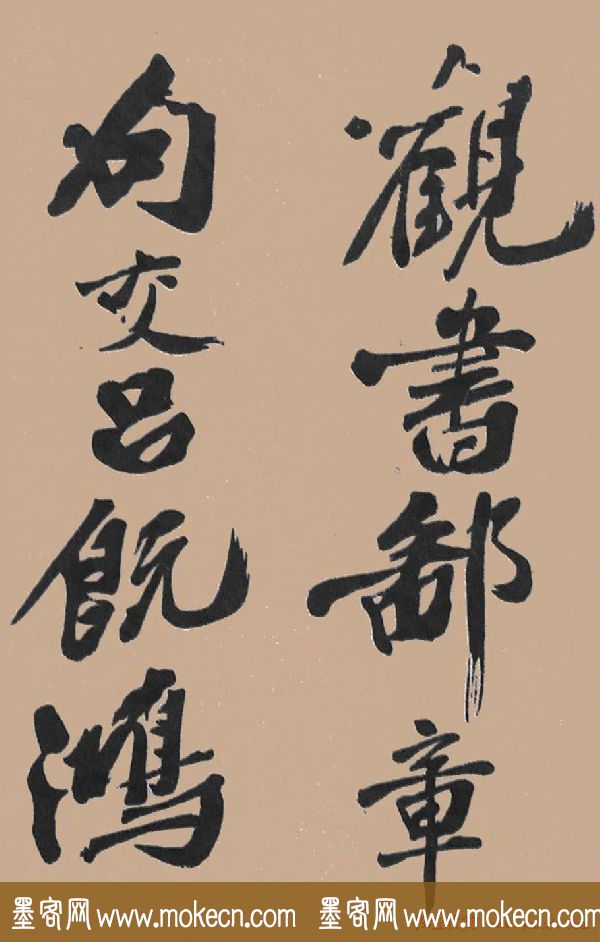 觀書鄙章
句交呂既鴻
墨客网 www.mokecn.com 墨客网 www.mokecn.com